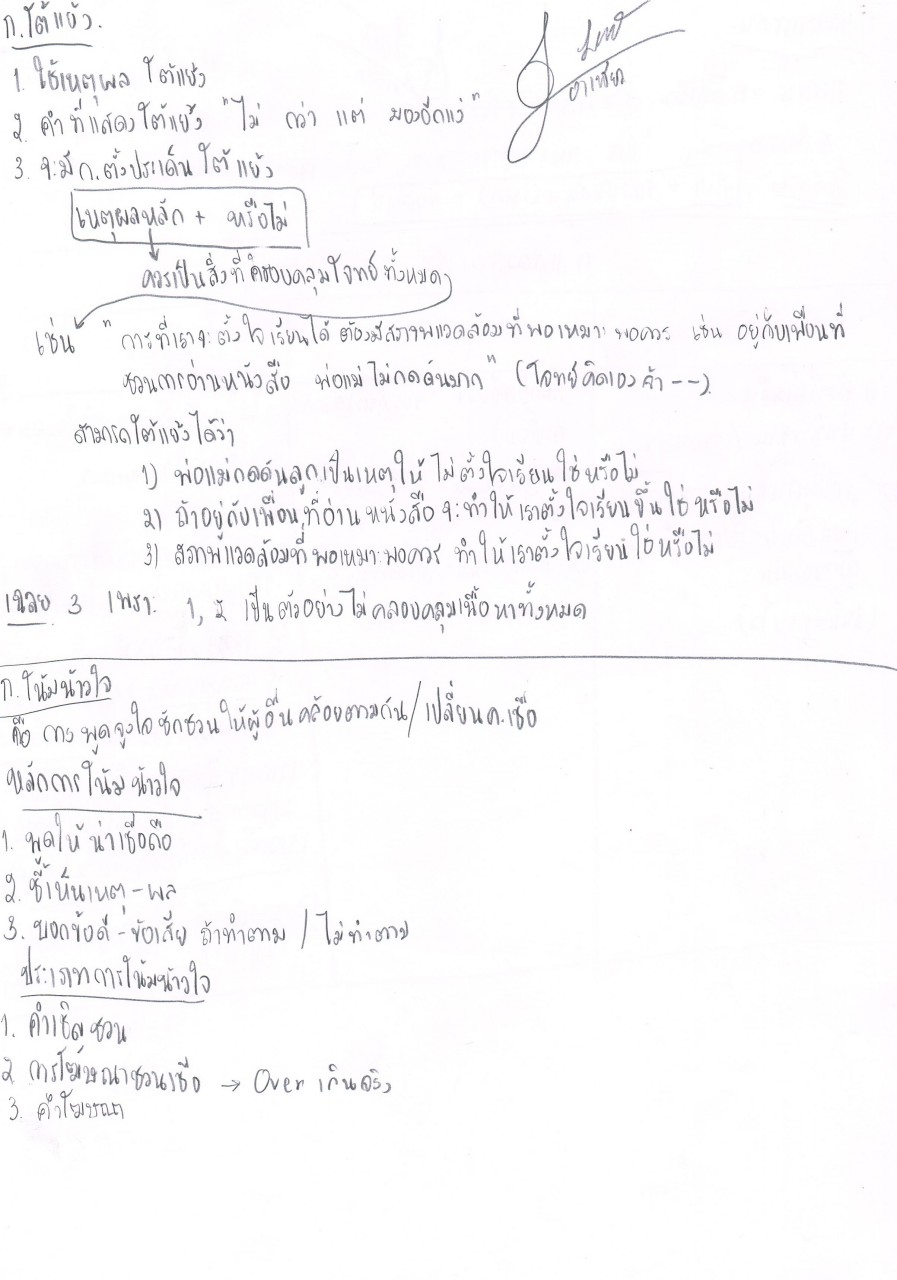 ก.โต้แย้ง.
อาเซียว
1. ใช้เหตุผล โต้แย้ง
2. คำที่แสดงโต้แย้ง "ไม่ กว่า แต่ มองอีกแง่"
3. จะมี ก.ตั้งประเด็นโต้แย้ง
เหตุผลหลัก + หรือไม่
ควรเป็นสิ่งที่ครอบคลุมโจทย์ทั้งหมด
เช่น "การที่เราจะตั้งใจเรียนได้ ต้องมีสภาพแวดล้อมที่พอเหมาะพอควร เช่น อยู่กับเพื่อนที่
ชวนการอ่านหนังสือ พ่อแม่ไม่กดดันมาก" (โจทย์คิดเองค้า --)
สามารถโต้แย้งได้ว่า
1) พ่อแม่กดดันลูกเป็นเหตุให้ไม่ตั้งใจเรียนใช่หรือไม่
2) ถ้าอยู่กับเพื่อนที่อ่านหนังสือจะทำให้เราตั้งใจเรียนขึ้นใช่หรือไม่
3) สภาพแวดล้อมที่พอเหมาะพอควร ทำให้เราตั้งใจเรียนใช่หรือไม่
เฉลย 3 เพราะ 1, 2 เป็นตัวอย่างไม่คลอบคลุมเนื้อหาทั้งหมด
ก.โน้มน้าวใจ
คือ การพูดจูงใจชักชวนให้ผู้อื่นคล้อยตามกัน/เปลี่ยน ค.เชื่อ
หลักการโน้มน้าวใจ
1. พูดให้น่าเชื่อถือ
2. ชี้เห็นเหตุ-ผล
3. บอกข้อดี-ข้อเสีย ถ้าทำตาม / ไม่ทำตาม
ประเภทการโน้มน้าวใจ
1. คำเชิญชวน
2. การโฆษณาชวนเชื่อ → Over เกินจริง
3. คำโฆษณา